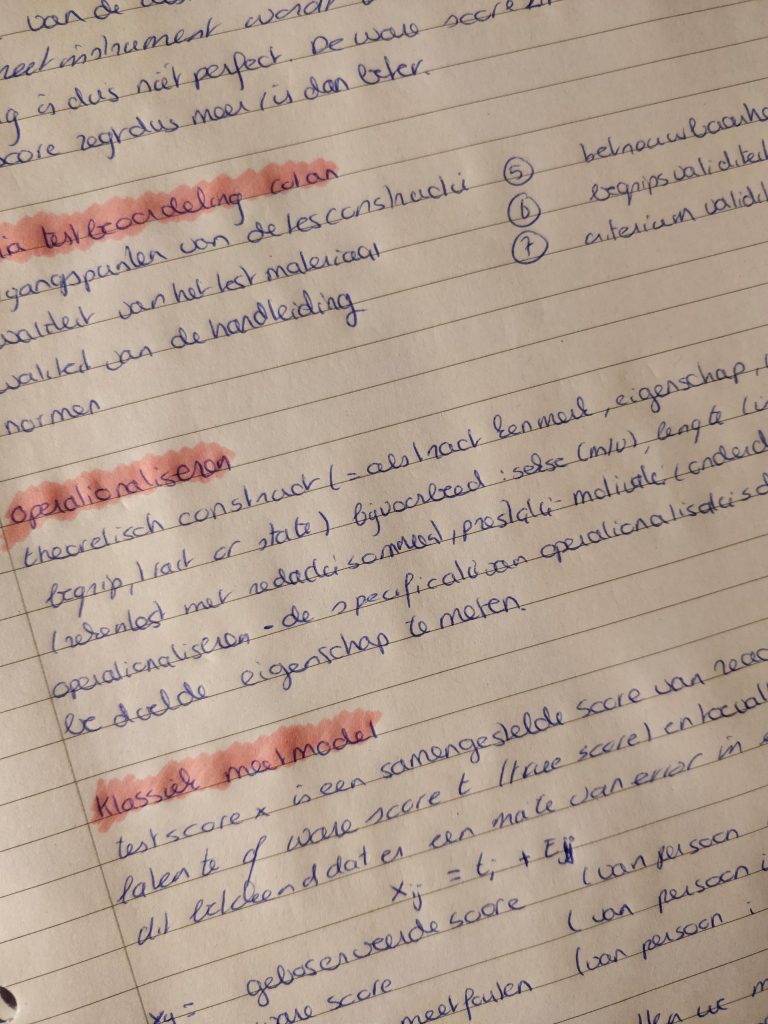 van de
meetinstrument word
g is dus niet perfect. De ware score
score zegt dus meer / is dan beter.
ia testbeoordeling cotan
gangspunten van de testconstructie
waliteit van het test materiaal
waliteit van de handleiding
normen
⑤ betrouwbaarhe
⑥ begripsvaliditeit
⑦ criterium validit
operationaliseren
theoretisch construct (= abstract kenmerk, eigenschap,
begrip, trait or state) bijvoorbeeld: sekse (m/v), lengte (i
(rekentest met redactiesommen), prestatie-motivatie (onderd
operationaliseren - de specificatie van operationalisatie
bedoelde eigenschap te meten.
klassiek meetmodel
testscore x is een samengestelde score van reac
latente of ware score t (true score) en toeval
dit betekend dat er een mate van error in
xij = ti + Eij
xij = geboserveerde score (van persoon
ware score (van persoon i
meetfouten (van persoon i
we m